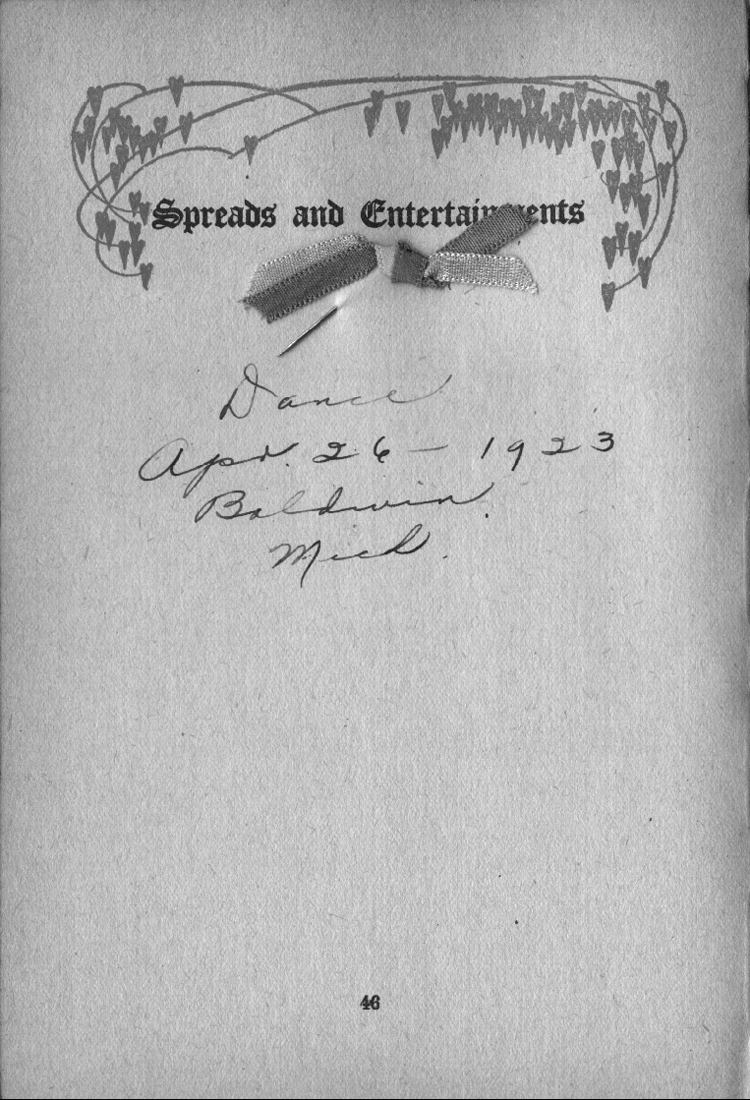 Spreads and Entertainments
Dance
Apr. 26 - 1923
Baldwin.
Mich.
46